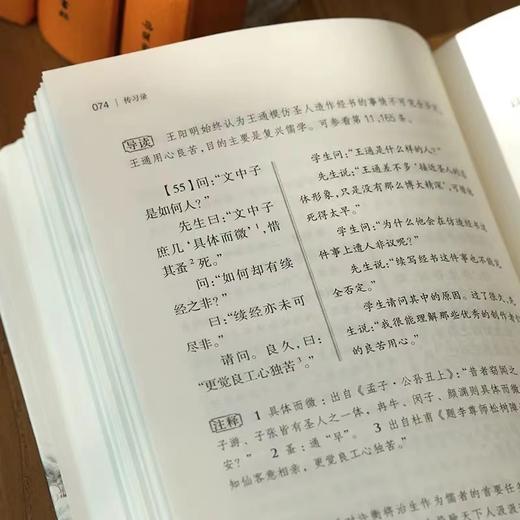 074 | 传习录
导读 王阳明始终认为王通模仿圣人造作经书的事情不可完全否定,
王通用心良苦,目的主要是复兴儒学。可参看第11、165条。
【55】问:“文中子
是如何人?”
先生曰:“文中子
庶几‘具体而微’1,惜
其蚤2死。”
问:“如何却有续
经之非?”
曰:“续经亦未可
尽非。”
请问。良久,曰:
“更觉良工心独苦3。”
学生问:“王通是什么样的人?”
先生说:“王通差不多‘接近圣人的总
体形象,只是没有那么博大精深’,可惜他
死得太早。”
学生问:“为什么他会在仿造经书这
件事上遭人非议呢?”
先生说:“续写经书这件事也不能完
全否定。”
学生请问其中的原因。过了很久,先
生说:“我很能理解那些优秀的制作者们
的良苦用心。”
注释 1 具体而微:出自《孟子·公孙丑上》:“昔者窃闻之
子游、子张皆有圣人之一体,冉牛、闵子、颜渊则具体而微
安?” 2 蚤:通“早”。 3 出自杜甫《题李尊师松树障
知仙客意相亲,更觉良工心独苦。”
时许衡将治生作为儒者的首要任
天下人汲汲